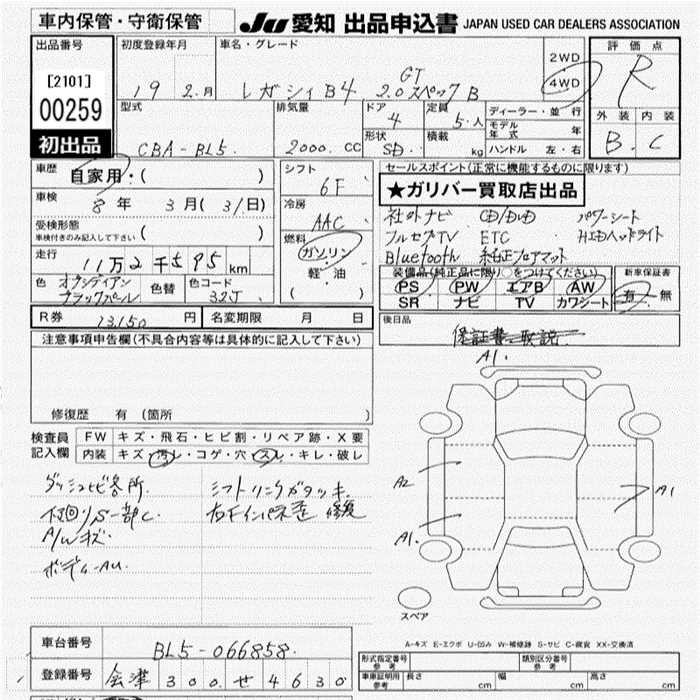 車内保管・守衛保管
JU 愛知 出品申込書 JAPAN USED CAR DEALERS ASSOCIATION
出品番号
[2101]
00259
初出品
初度登録年月
19 2.月
車名・グレード
レガシィB4 2.0スペックB
GT
2WD
4WD
評価点
R
外装 内装
B. C
型式
CBA-BL5.
排気量
2000. CC
ドア
4
定員
5.人
形状
SD
積載
kg
ディーラー・並行
モデル年式 年
ハンドル 左・右
車歴
自家用・( )
車検
8年 3月(31日)
受検形態
車検付きのみ記入して下さい ( )
走行
11万2千595km
色
オブシディアンブラックパール
色替
色コード
32J
シフト
6F
冷房
AAC
燃料
ガソリン
軽・油
( )
セールスポイント(正常に機能するものに限ります)
★ガリバー買取店出品
社外ナビ CD/DVD パワーシート
フルセグTV ETC HIDヘッドライト
Bluetooth 純正フロアマット
装備品(純正品に限り○をつけてください)
PS PW エアB AW
SR ナビ TV カワシート
新車保証書
有・無
R券 13,150 円
名変期限 月 日
後日品
保証書・取説
注意事項申告欄(不具合内容等は具体的に記入して下さい)
修復歴 有 (箇所 )
検査員記入欄
FW キズ・飛石・ヒビ割・リペア跡・X要
内装 キズ・汚レ・コゲ・穴・スレ・キレ・破レ
ダッシュビス各所.
下回りS一部C
A/Wキズ
ボディーAU.
シフトリングガタツキ.
右Fインパネ歪 修復
A1.
A2
A1.
A1
スペア
A-キズ E-エクボ U-凹み W-補修跡 S-サビ C-腐蝕 XX-交換済
車台番号
BL5-066858.
登録番号
会津 300 せ 4630
型式指定番号 参考
類別区分番号 参考
車庫証明用 参考
長さ cm
幅 cm
高さ cm